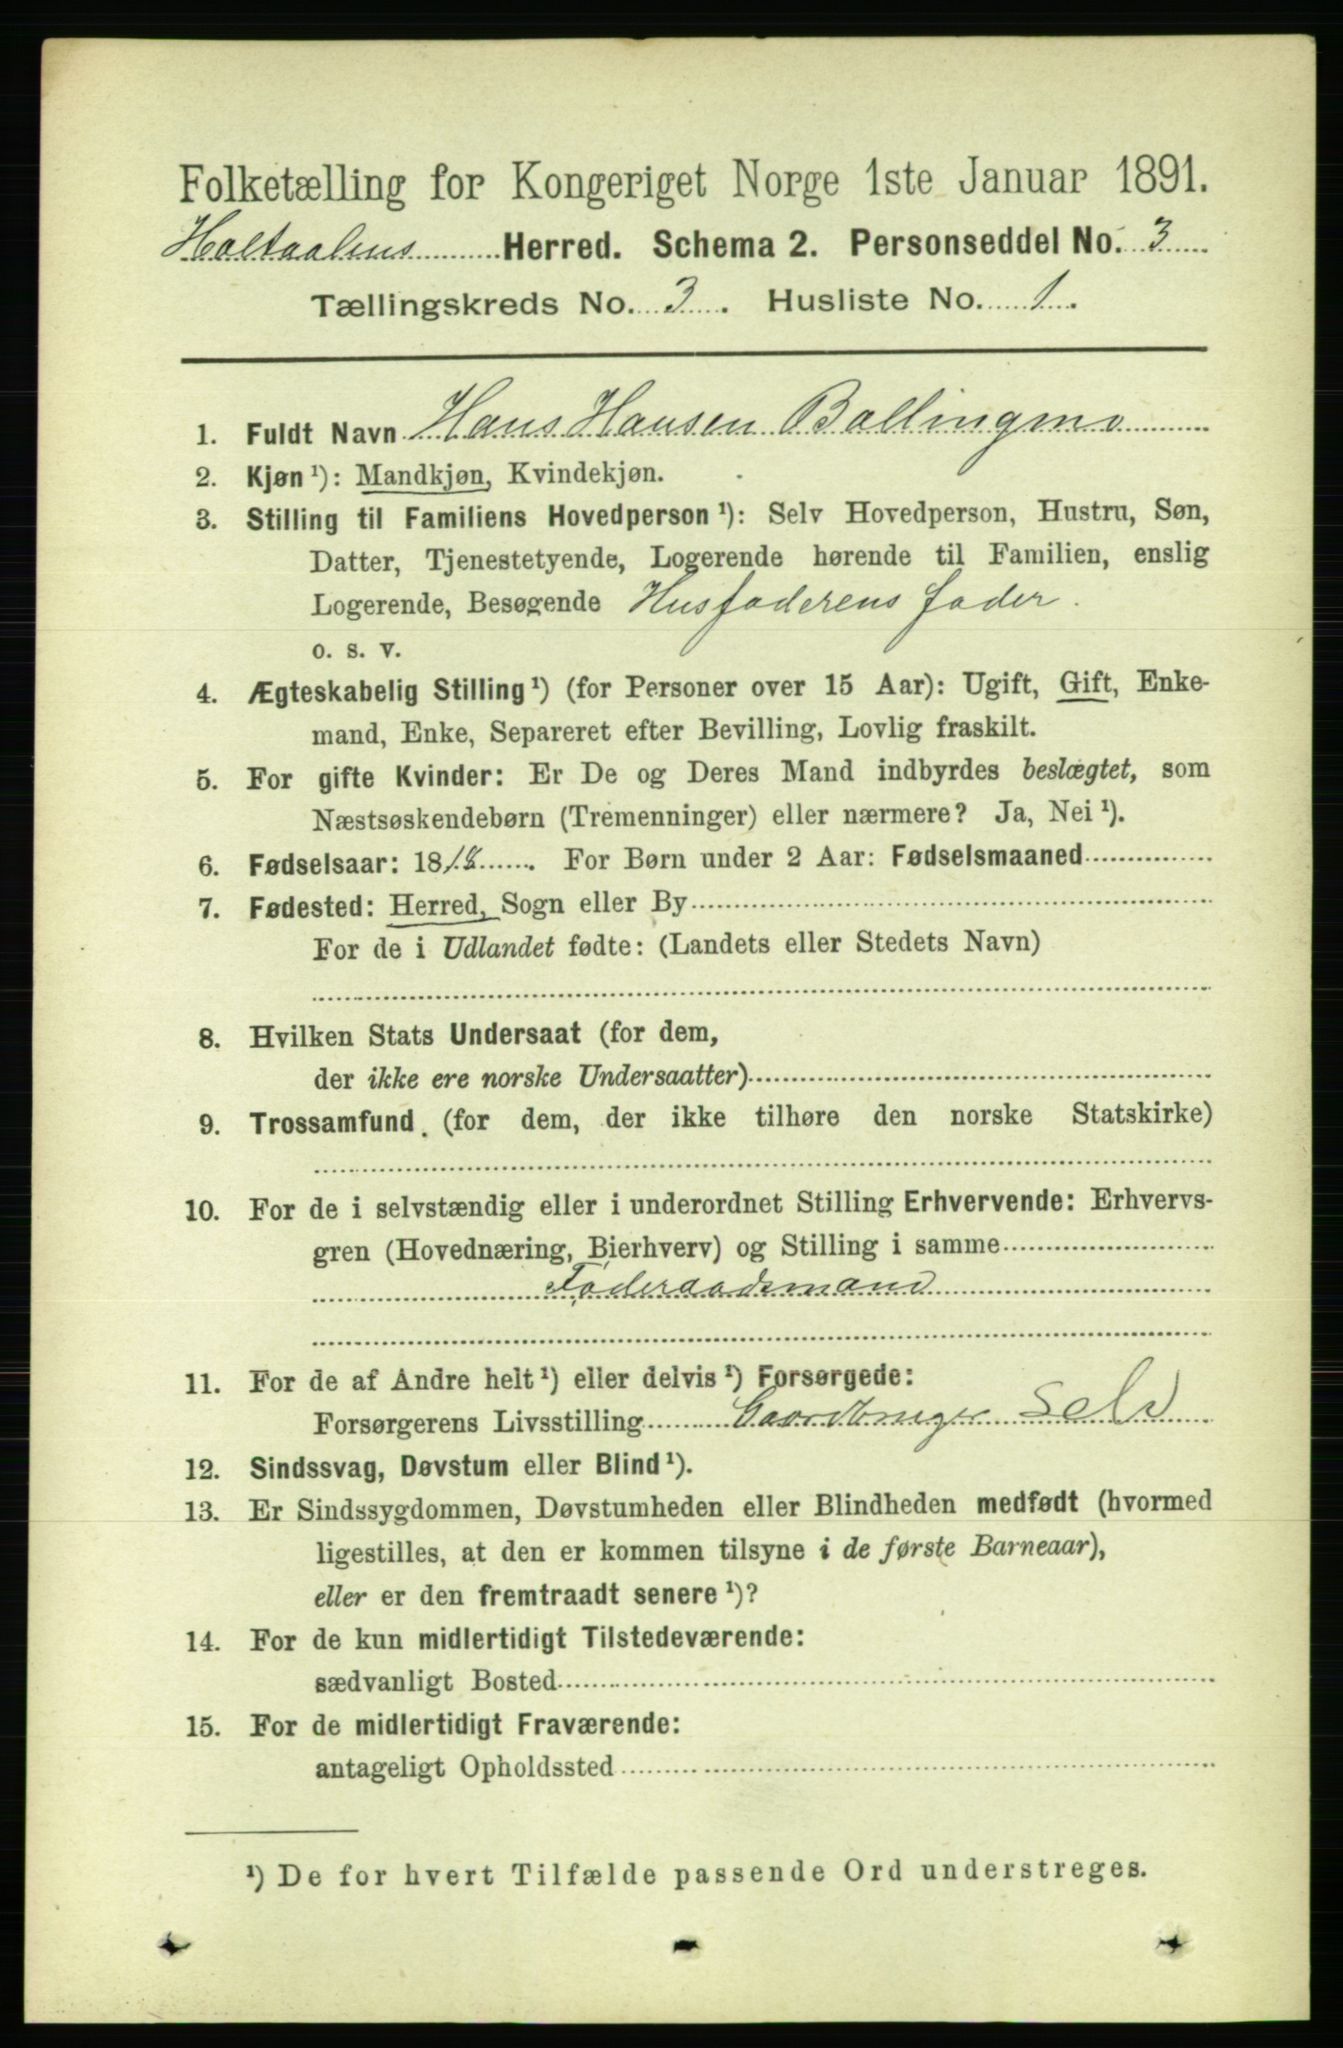 Folketælling for Kongeriget Norge 1ste Januar 1891.
Holtaalens Herred. Schema 2. Personseddel No. 3
Tællingskreds No. 3. Husliste No. 1.
1. Fuldt Navn Hans Hansen Ballingmo
2. Kjøn ¹): Mandkjøn, Kvindekjøn.
3. Stilling til Familiens Hovedperson ¹): Selv Hovedperson, Hustru, Søn,
Datter, Tjenestetyende, Logerende hørende til Familien, enslig
Logerende, Besøgende Husfaderens fader.
o. s. v.
4. Ægteskabelig Stilling ¹) (for Personer over 15 Aar): Ugift, Gift, Enke-
mand, Enke, Separeret efter Bevilling, Lovlig fraskilt.
5. For gifte Kvinder: Er De og Deres Mand indbyrdes beslægtet, som
Næstsøskendebørn (Tremenninger) eller nærmere? Ja, Nei ¹).
6. Fødselsaar: 1818. For Børn under 2 Aar: Fødselsmaaned
7. Fødested: Herred, Sogn eller By
For de i Udlandet fødte: (Landets eller Stedets Navn)
8. Hvilken Stats Undersaat (for dem,
der ikke ere norske Undersaatter)
9. Trossamfund. (for dem, der ikke tilhøre den norske Statskirke)
10. For de i selvstændig eller i underordnet Stilling Erhvervende: Erhvervs-
gren (Hovednæring, Bierhverv) og Stilling i samme
Føderaadsmand
11. For de af Andre helt ¹) eller delvis ¹) Forsørgede:
Forsørgerens Livsstilling Gaardbruger Selv
12. Sindssvag, Døvstum eller Blind ¹).
13. Er Sindssygdommen, Døvstumheden eller Blindheden medfødt (hvormed
ligestilles, at den er kommen tilsyne i de første Barneaar),
eller er den fremtraadt senere ¹)?
14. For de kun midlertidigt Tilstedeværende:
sædvanligt Bosted
15. For de midlertidigt Fraværende:
antageligt Opholdssted
¹) De for hvert Tilfælde passende Ord understreges.